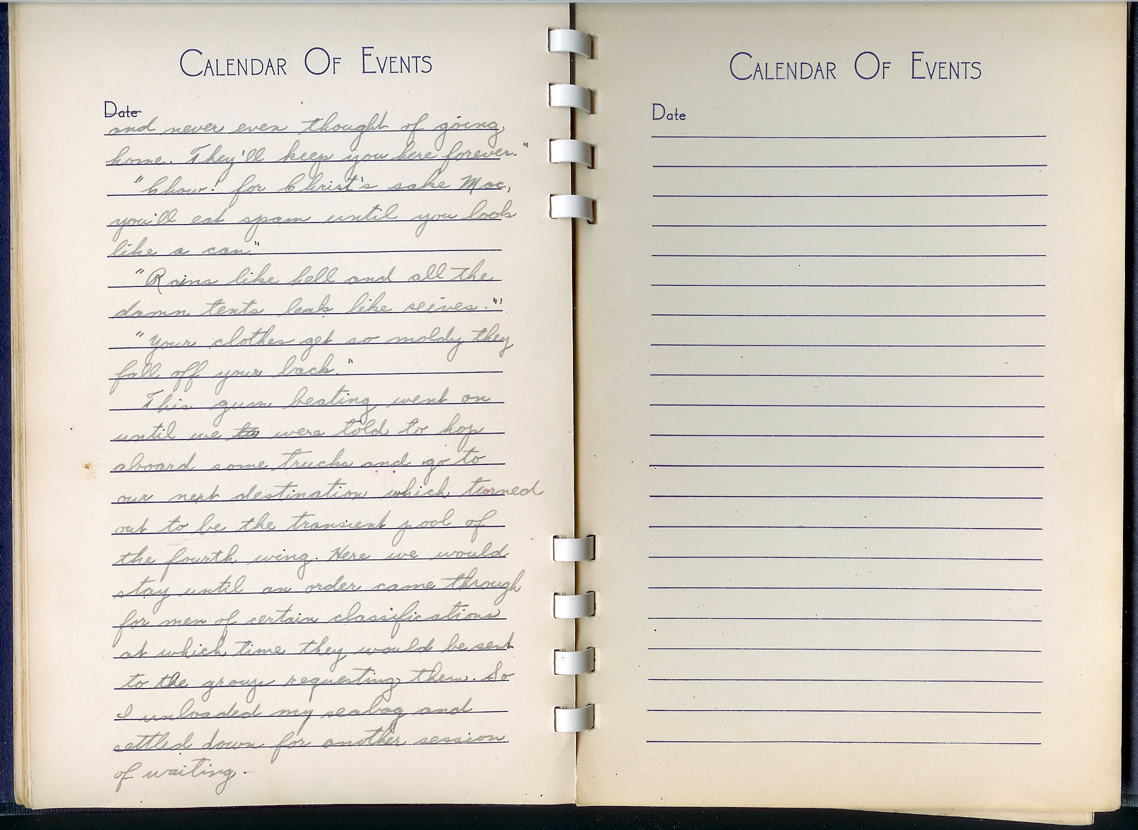 CALENDAR OF EVENTS
Date
and never even thought of going
home. They'll keep you here forever."
"Chow! for Christ's sake Mac,
you'll eat spam until you look
like a can."
"Rains like hell and all the
damn tents leak like seives."'
"Your clothes get so moldy they
fall off your back."
This gum beating went on
until we were told to hop
aboard some trucks and go to
our next destination which turned
out to be the transient pool of
the fourth wing. Here we would
stay until an order came through
for men of certain classifications
at which time they would be sent
to the group requesting them. So
I unloaded my seabag and
settled down for another session
of waiting.-
CALENDAR OF EVENTS
Date